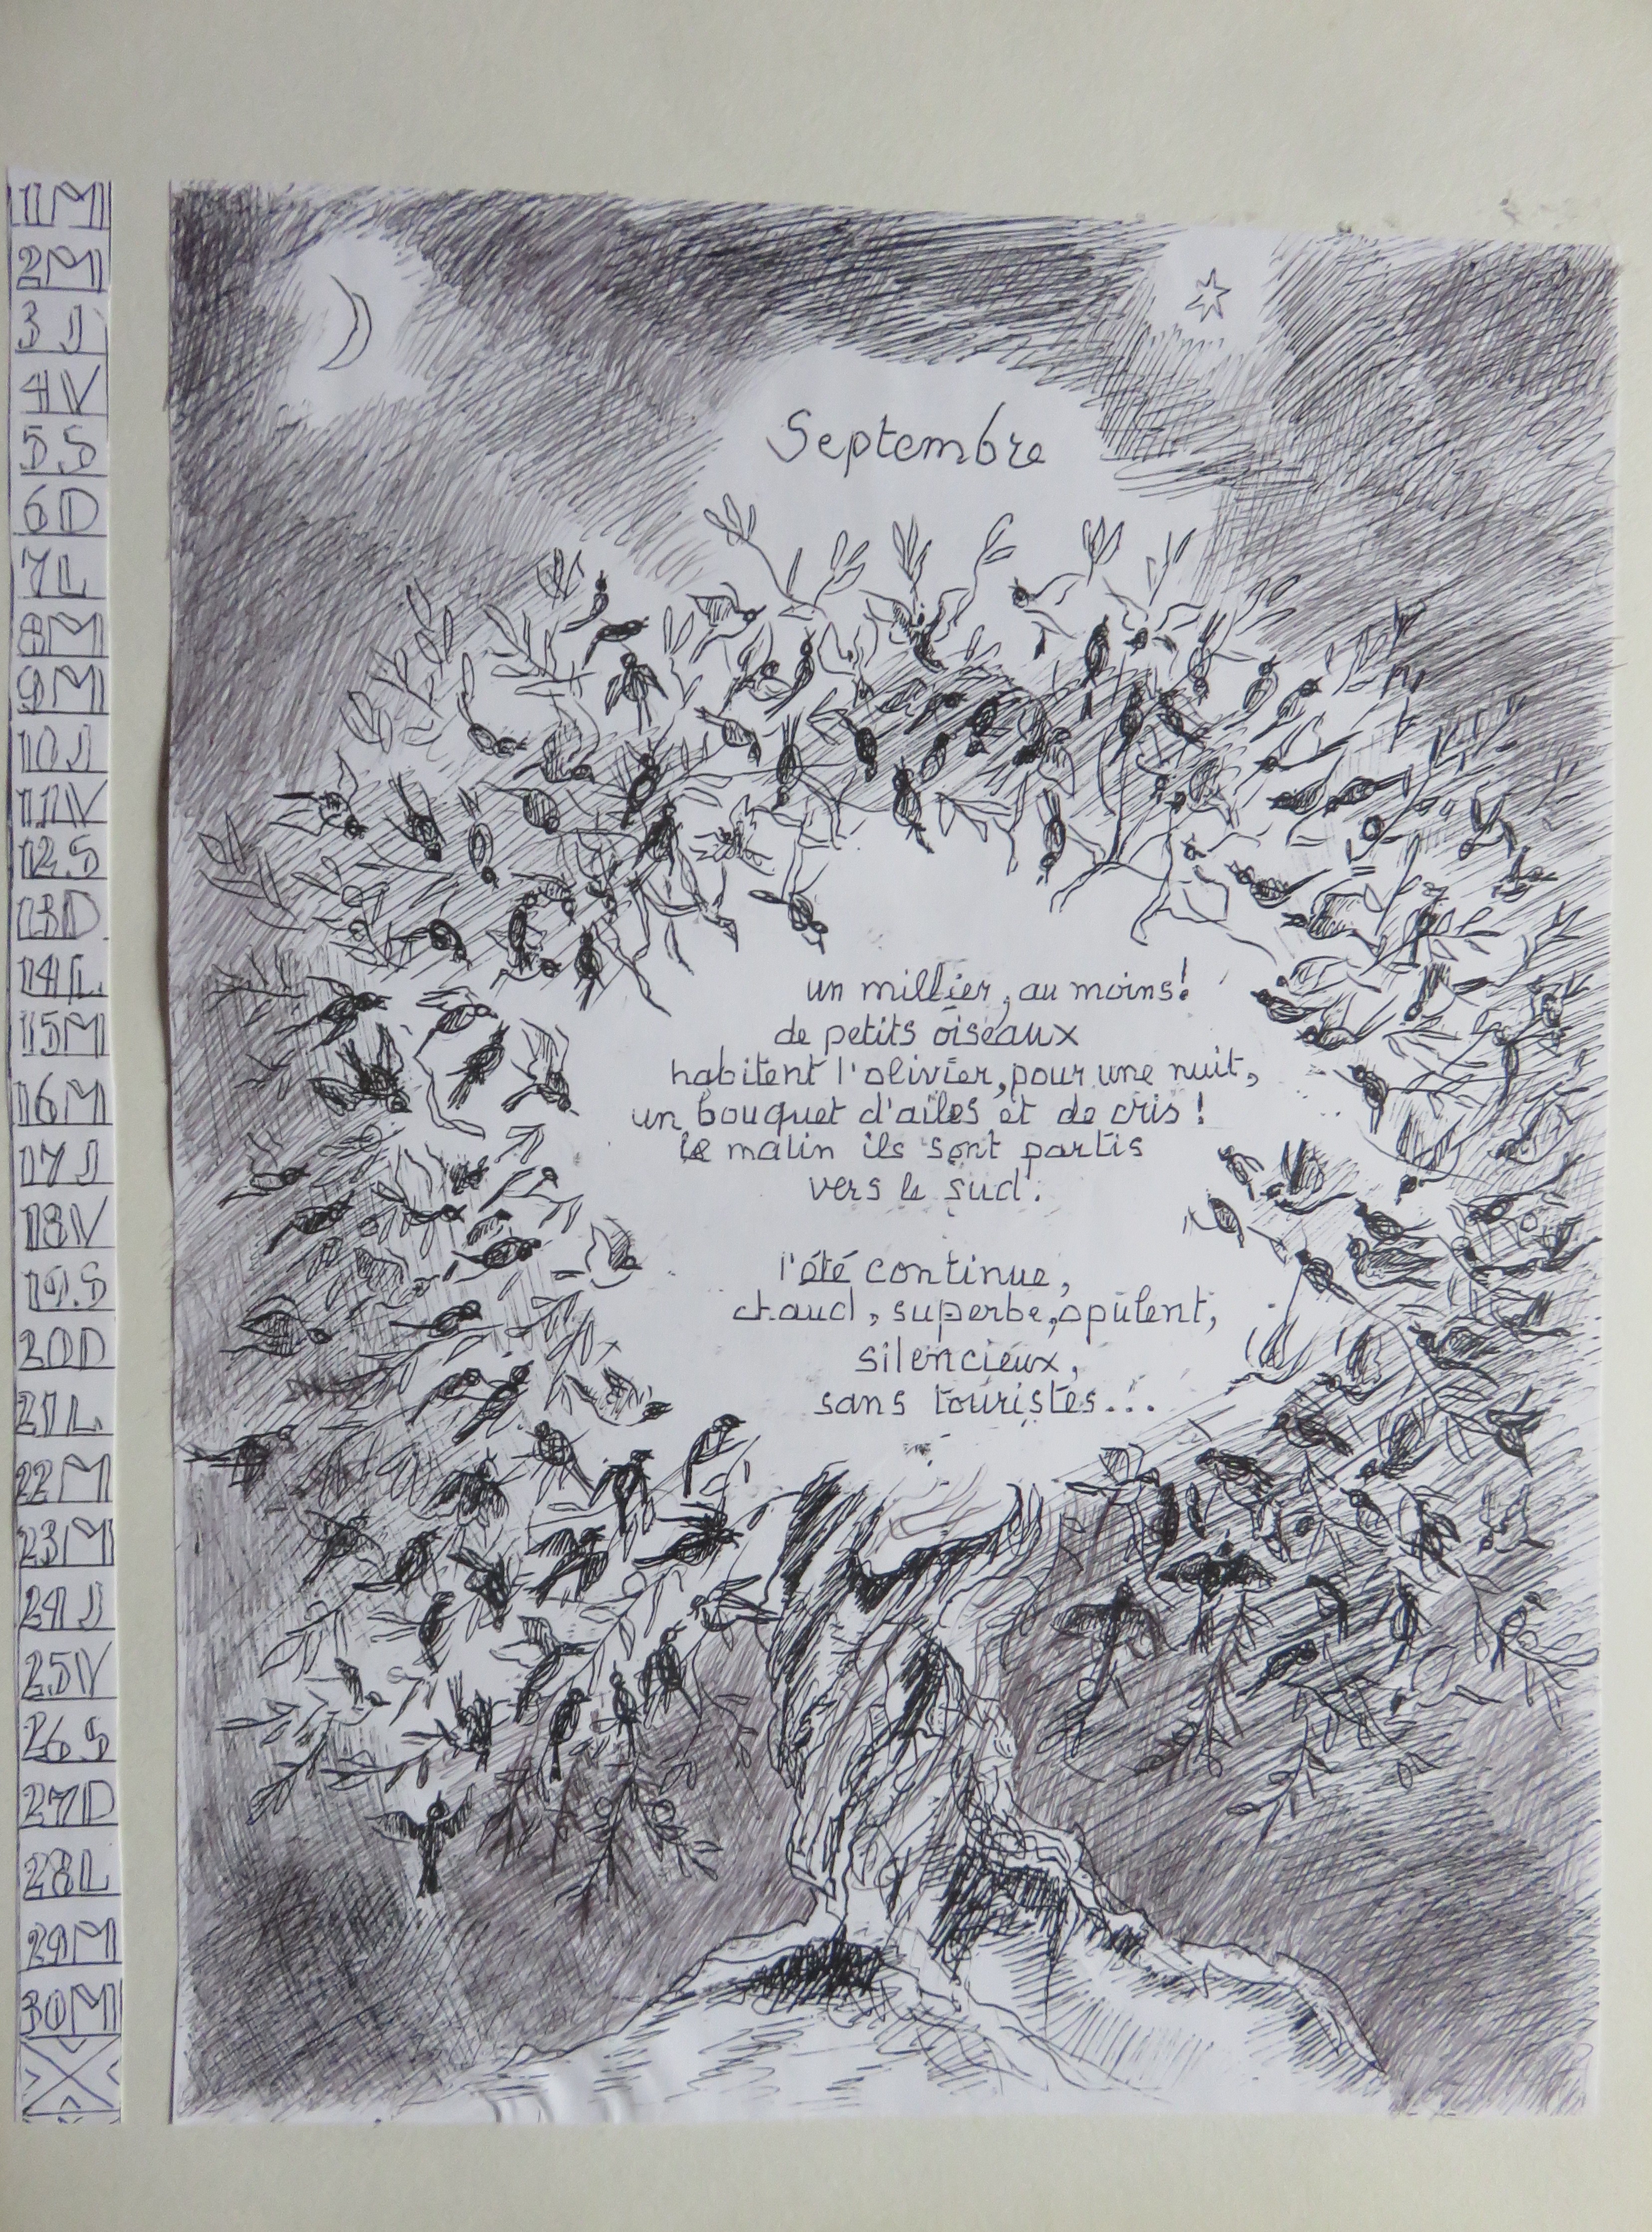 1M
2M
3J
4V
5S
6D
7L
8M
9M
10J
11V
12S
13D
14L
15M
16M
17J
18V
19S
20D
21L
22M
23M
24J
25V
26S
27D
28L
29M
30M
Septembre
un millier, au moins!
de petits oiseaux
habitent l'olivier, pour une nuit,
un bouquet d'ailes et de cris!
le matin ils sont partis
vers le sud.
l'été continue,
chaud, superbe, opulent,
silencieux,
sans touristes...